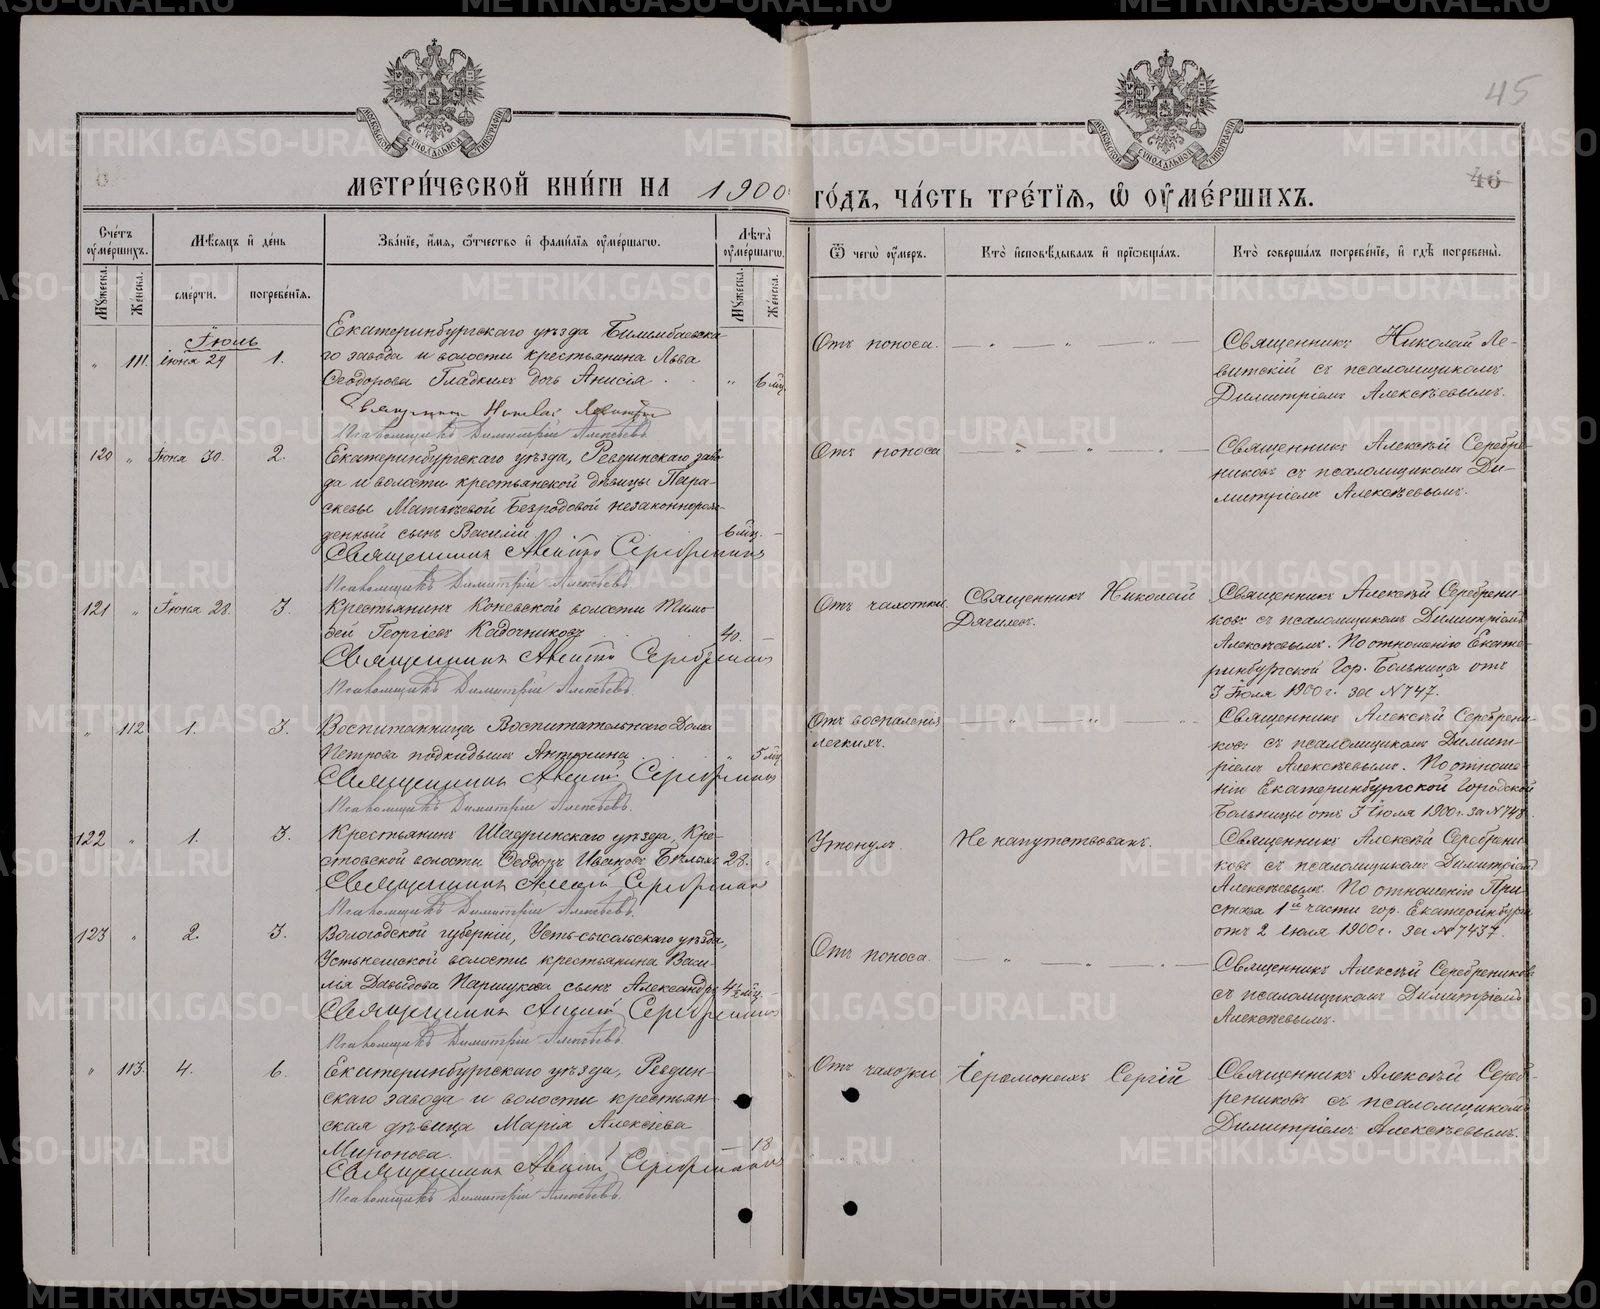 45
46
МЕТРИ́ЧЕСКОЙ КНИ́ГИ НА 1900 ГО́ДЪ, ЧА́СТЬ ТРЕ́ТЇѦ, Ѽ ОУ҆МЕ́РШИХЪ.
Сче́тъ оу҆ме́ршихъ.
Мѣ́сѧцъ и҆ де́нь
Зва́нїе, и҆́мѧ, ѻ҆́тчество и҆ фами́лїѧ оу҆ме́ршагѡ.
Лѣ́та оу҆ме́ршагѡ.
Ѿ чегѡ̀ оу҆́меръ.
Кто̀ и҆сповѣ́дывалъ и҆ прїѡбща́лъ.
Кто̀ соверша́лъ погребе́нїе, и҆ гдѣ̀ погребены̀.
Му́жеска.
Же́нска.
сме́рти.
погребе́нїѧ.
Му́жеска.
Же́нска.
Іюль
" 111. Іюня 29 1.
Екатеринбургскаго уѣзда Билимбаевска-
го завода и волости крестьянина Льва
Ѳеодорова Гладкихъ дочь Анисія . " 6 мц.
Священникъ Николай Левитскій
Псаломщикъ Димитрій Алексѣевъ
Отъ поноса.
Священникъ Николай Ле-
витскій съ псаломщикомъ
Димитріемъ Алексѣевымъ.
120 " Іюня 30. 2.
Екатеринбургскаго уѣзда, Ревдинскаго заво-
да и волости крестьянской дѣвицы Пара-
скевы Матвѣевой Безродовой незаконнорож-
денный сынъ Василій 6 мц. –
Священникъ Алексѣй Серебренниковъ
Псаломщикъ Димитрій Алексѣевъ
Отъ поноса
Священникъ Алексѣй Серебре-
никовъ съ псаломщикомъ Ди-
митріемъ Алексѣевымъ.
121 " Іюня 28. 3.
Крестьянинъ Коневской волости Тимо-
ѳей Георгіевъ Кадочниковъ 40. –
Священникъ Алексѣй Серебренниковъ
Псаломщикъ Димитрій Алексѣевъ.
Отъ чахотки.
Священникъ Николай
Дягилевъ.
Священникъ Алексѣй Серебрени-
ковъ съ псаломщикомъ Димитріемъ
Алексѣевымъ. По отношенію Екате-
ринбургской Гор. Больницы отъ
3 Іюля 1900 г. за №747.
" 112 1. 3.
Воспитанница Воспитательнаго Дома
Петрова подкидышъ Антонина " 5 мц
Священникъ Алексѣй Серебренниковъ
Псаломщикъ Димитрій Алексѣевъ.
Отъ воспаленія
легкихъ.
Священникъ Алексѣй Серебрени-
ковъ съ псаломщикомъ Димит-
ріемъ Алексѣевымъ. По отноше-
нію Екатеринбургской Городской
Больницы отъ 3 Іюля 1900 г. за №748.
122 " 1. 3.
Крестьянинъ Шадринскаго уѣзда, Кре-
стовской волости Ѳеодоръ Ивановъ Бѣлыхъ 28. "
Священникъ Алексѣй Серебренниковъ
Псаломщикъ Димитрій Алексѣевъ.
Утонулъ.
Не напутствованъ.
Священникъ Алексѣй Серебрени-
ковъ съ псаломщикомъ Димитріемъ
Алексѣевымъ. По отношенію При-
става 1й части гор. Екатеринбурга
отъ 2 Іюля 1900 г. за №7437.
123 " 2. 3.
Вологодской губерніи, Усть-сысольскаго уѣзда,
крестьянина Васи-
лія Давыдова сынъ Александръ 4½ мц. –
Священникъ Алексѣй Серебренниковъ
Псаломщикъ Димитрій Алексѣевъ
Отъ поноса.
Священникъ Алексѣй Серебрениковъ
съ псаломщикомъ Димитріемъ
Алексѣевымъ.
" 113. 4. 6.
Екатеринбургскаго уѣзда, Ревдин-
скаго завода и волости крестьян-
ская дѣвица Марія Алексѣева
Миронова. – 18
Священникъ Алексѣй Серебренниковъ
Псаломщикъ Димитрій Алексѣевъ.
Отъ чахотки
Іеромонахъ Сергій
Священникъ Алексѣй Сереб-
рениковъ съ псаломщикомъ
Димитріемъ Алексѣевымъ.
METRIKI.GASO-URAL.RU